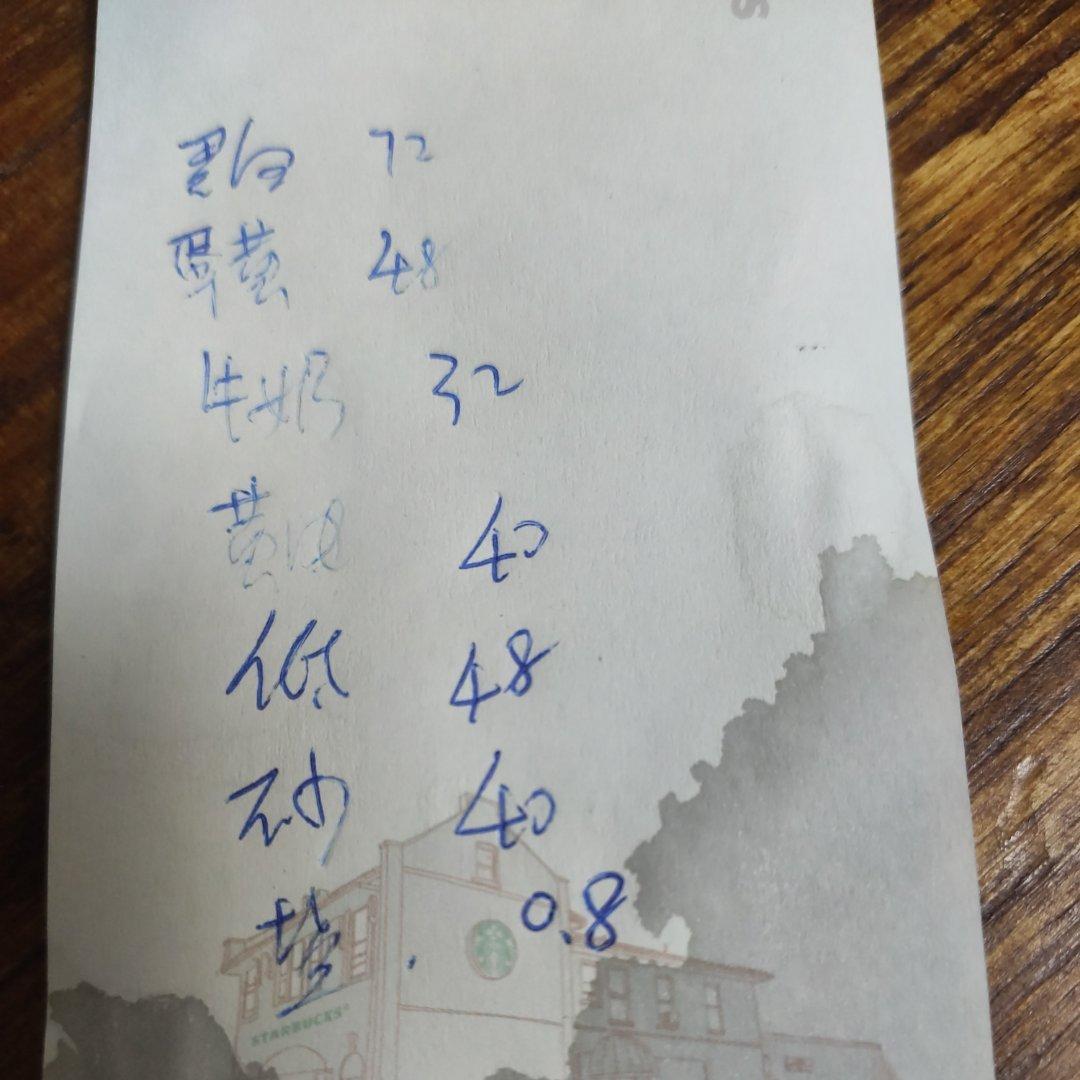 蛋白 72
蛋黄 48
牛奶 32
黄油 40
低 48
砂 40
盐 . 0.8
STARBUCKS®